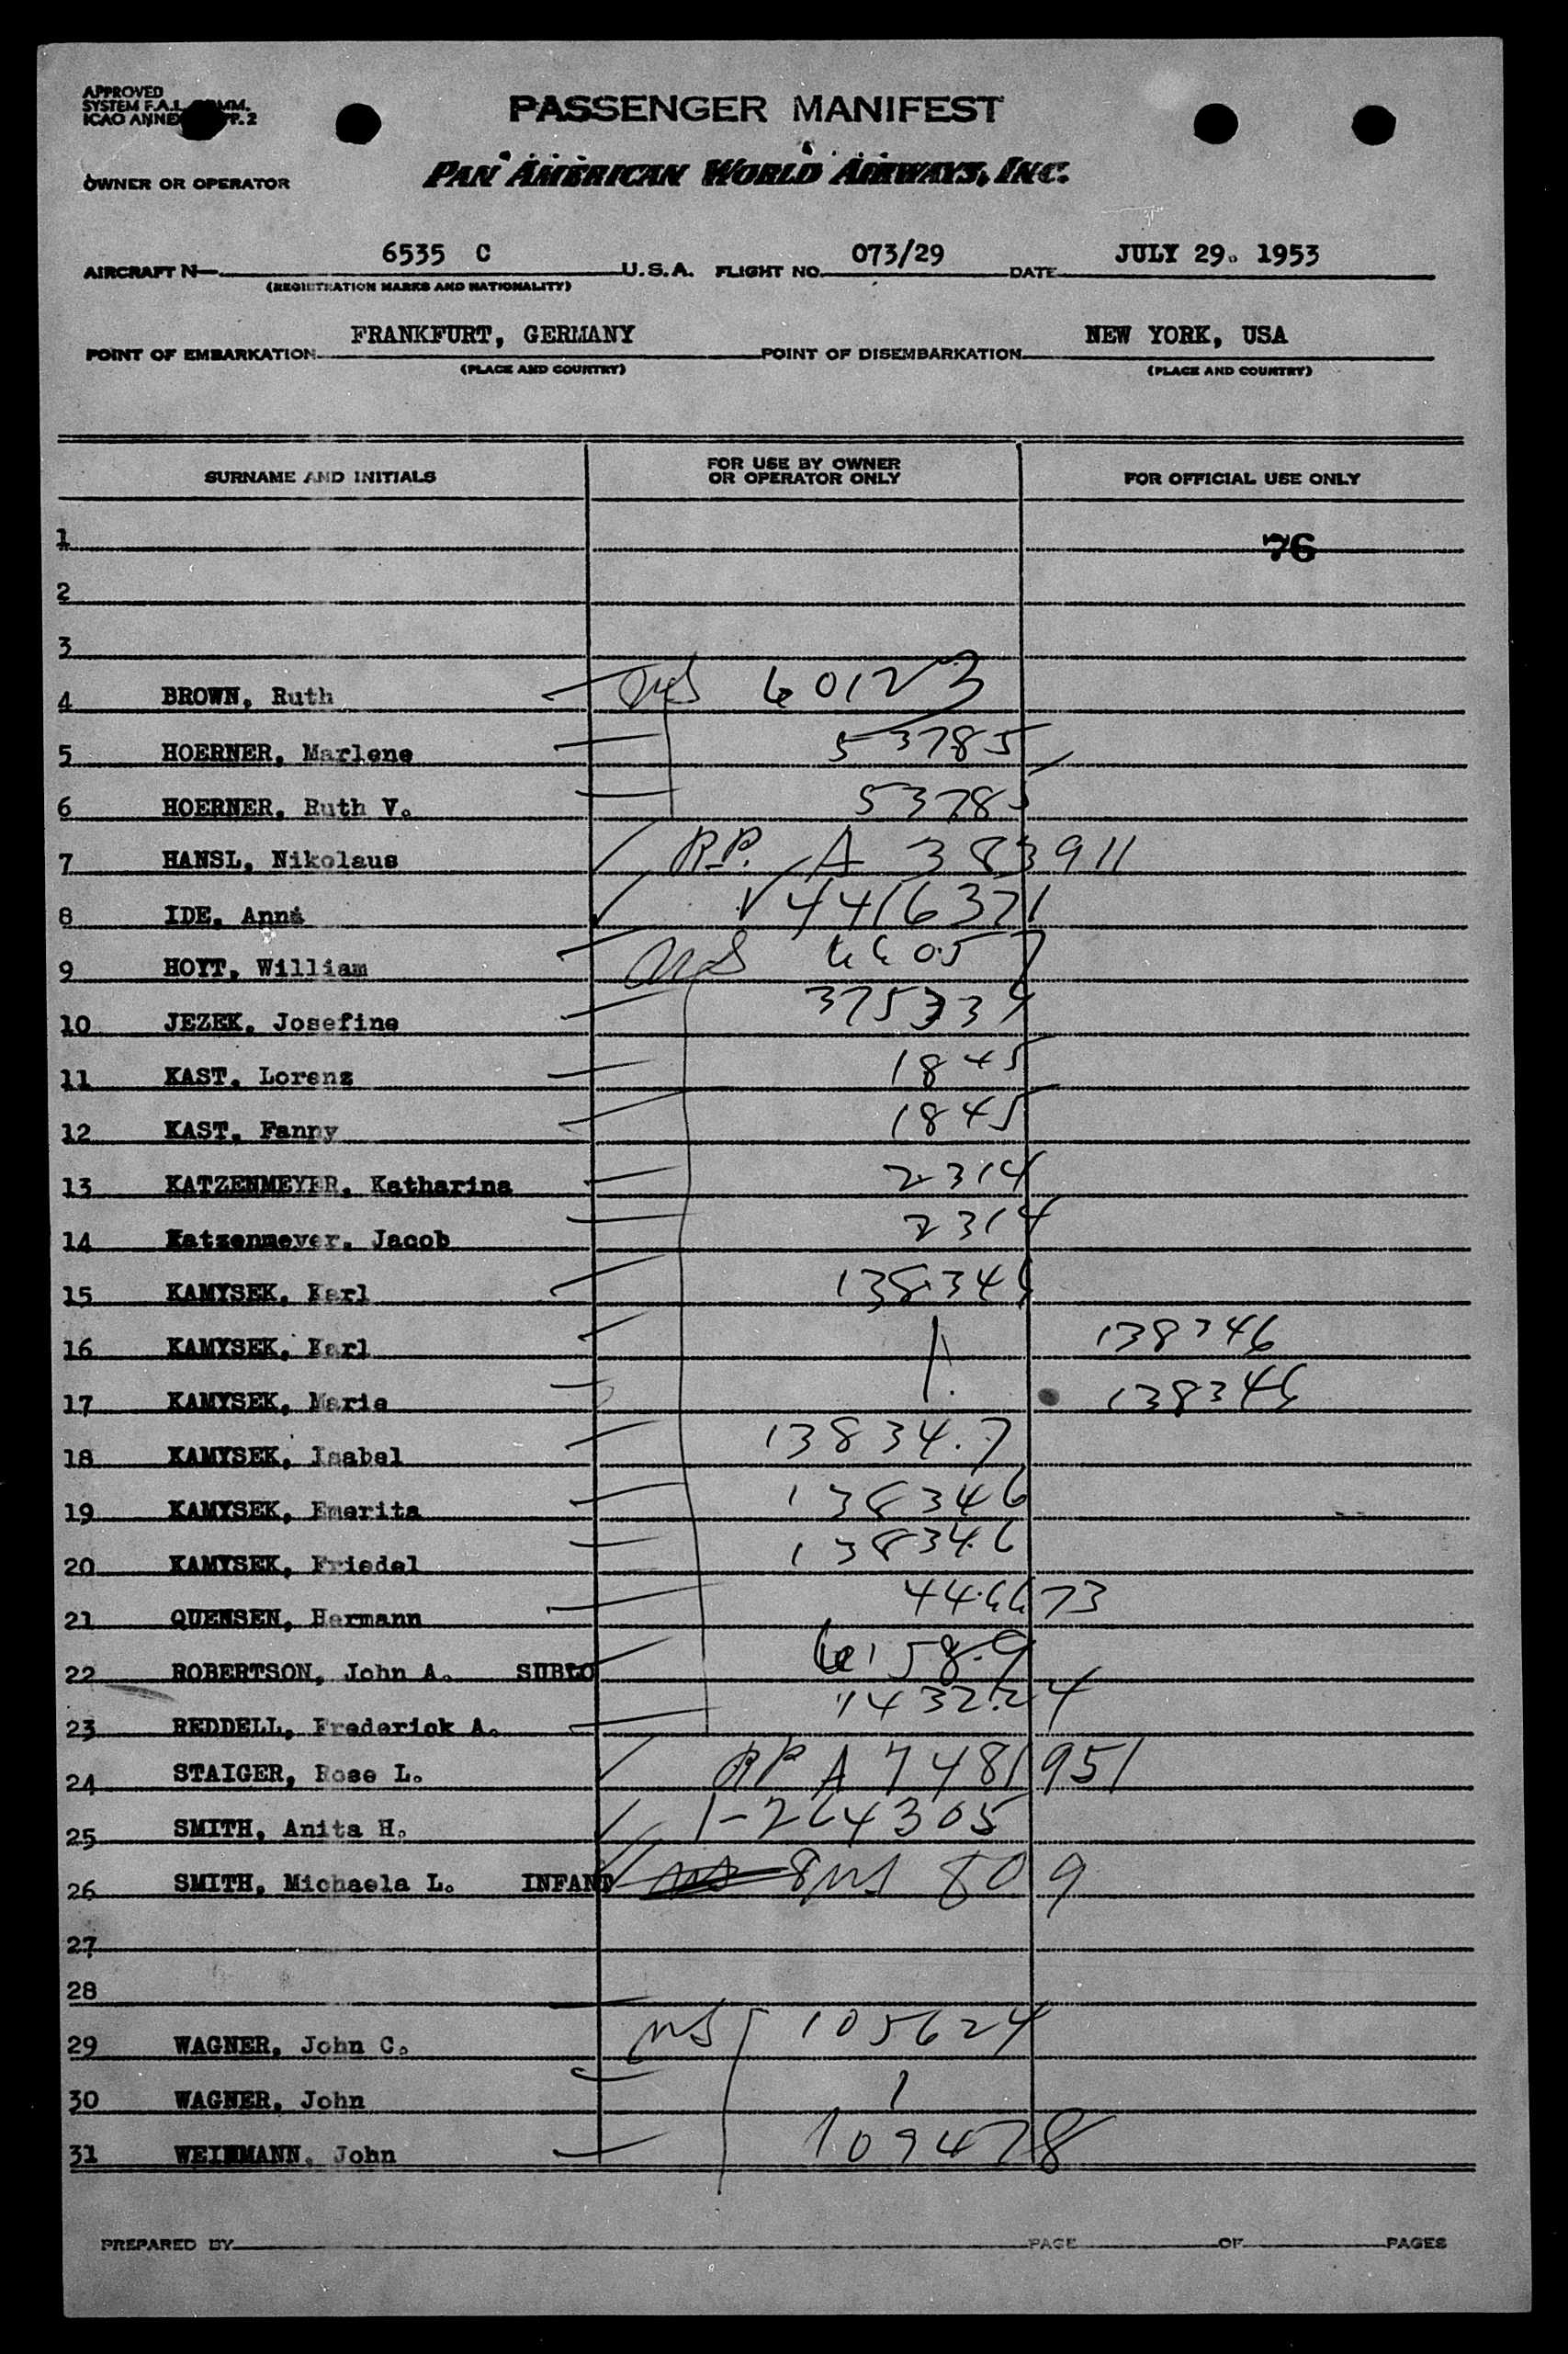 APPROVED
SYSTEM F.A.L. COMM.
ICAO ANNEX P.2
PASSENGER MANIFEST
OWNER OR OPERATOR PAN AMERICAN WORLD AIRWAYS, INC.
AIRCRAFT N 6535 C U.S.A. FLIGHT NO. 073/29 DATE JULY 29. 1953
(REGISTRATION MARKS AND NATIONALITY)
POINT OF EMBARKATION FRANKFURT, GERMANY POINT OF DISEMBARKATION NEW YORK, USA
(PLACE AND COUNTRY) (PLACE AND COUNTRY)
SURNAME AND INITIALS FOR USE BY OWNER OR OPERATOR ONLY FOR OFFICIAL USE ONLY
1 76
2
3
4 BROWN, Ruth 60123
5 HOERNER, Marlene 53785
6 HOERNER, Ruth V. 53785
7 HANSL, Nikolaus R.P. A 383911
8 IDE, Anna V 4416371
9 HOYT, William
10 JEZEK, Josefine 375334
11 KAST, Lorenz 1845
12 KAST, Fanny 1845
13 KATZENMEYER, Katharina 2314
14 Katzenmeyer, Jacob 2314
15 KAMYSEK, Karl 138346
16 KAMYSEK, Karl 138346
17 KAMYSEK, Maria 138346
18 KAMYSEK, Isabel 138347
19 KAMYSEK, Emerita 138346
20 KAMYSEK, Friedel 138346
21 QUENSEN, Hermann 446673
22 ROBERTSON, John A. SUBLO 61589
23 REDDELL, Frederick A. 143224
24 STAIGER, Rose L. RP A 7481951
25 SMITH, Anita H. 1-264305
26 SMITH, Michaela L. INFANT 809
27
28
29 WAGNER, John C. 105624
30 WAGNER, John
31 WEINMANN, John 109478
PREPARED BY PAGE OF PAGES